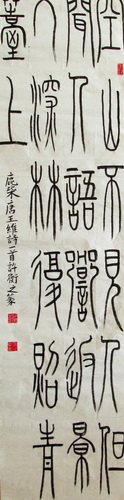 空山不見人但
聞人語響返景
入深林復照青
薹上
鹿柴唐王維詩一首許衡之篆